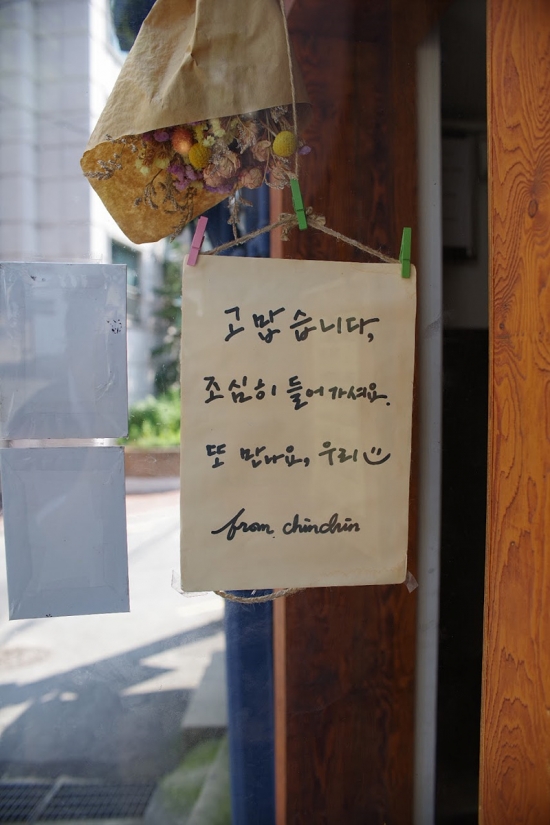 고맙습니다,
조심히 들어가셔요.
또 만나요, 우리
from. chinchin